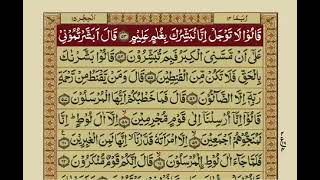 ربما ١٤
الحجر ١٥
قَالُوۡا لَا تَوۡجَلۡ اِنَّا نُبَشِّرُكَ بِغُلٰمٍ عَلِيۡمٍ ﴿۵۳﴾ قَالَ اَبَشَّرۡتُمُوۡنِىۡ
عَلٰٓى اَنۡ مَّسَّنِىَ الۡكِبَرُ فَبِمَ تُبَشِّرُوۡنَ ﴿۵۴﴾ قَالُوۡا بَشَّرۡنٰكَ
بِالۡحَـقِّ فَلَا تَكُنۡ مِّنَ الۡقٰنِطِيۡنَ ﴿۵۵﴾ قَالَ وَمَنۡ يَّقۡنَطُ مِنۡ رَّحۡمَةِ
رَبِّهٖۤ اِلَّا الضَّآلُّوۡنَ ﴿۵۶﴾ قَالَ فَمَا خَطۡبُكُمۡ اَيُّهَا الۡمُرۡسَلُوۡنَ ﴿۵۷﴾
قَالُـوۡۤا اِنَّاۤ اُرۡسِلۡنَاۤ اِلٰى قَوۡمٍ مُّجۡرِمِيۡنَ ﴿۵۸﴾ اِلَّاۤ اٰلَ لُوۡطٍؕ اِنَّا
لَمُنَجُّوۡهُمۡ اَجۡمَعِيۡنَ ﴿۵۹﴾ اِلَّا امۡرَاَتَهٗ قَدَّرۡنَاۤ ۙ اِنَّهَا لَمِنَ الۡغٰبِرِيۡنَ ﴿۶۰﴾
فَلَمَّا جَآءَ اٰلَ لُوۡطِ ۨالۡمُرۡسَلُوۡنَ ﴿۶۱﴾ قَالَ اِنَّـكُمۡ قَوۡمٌ مُّنۡكَرُوۡنَ ﴿۶۲﴾